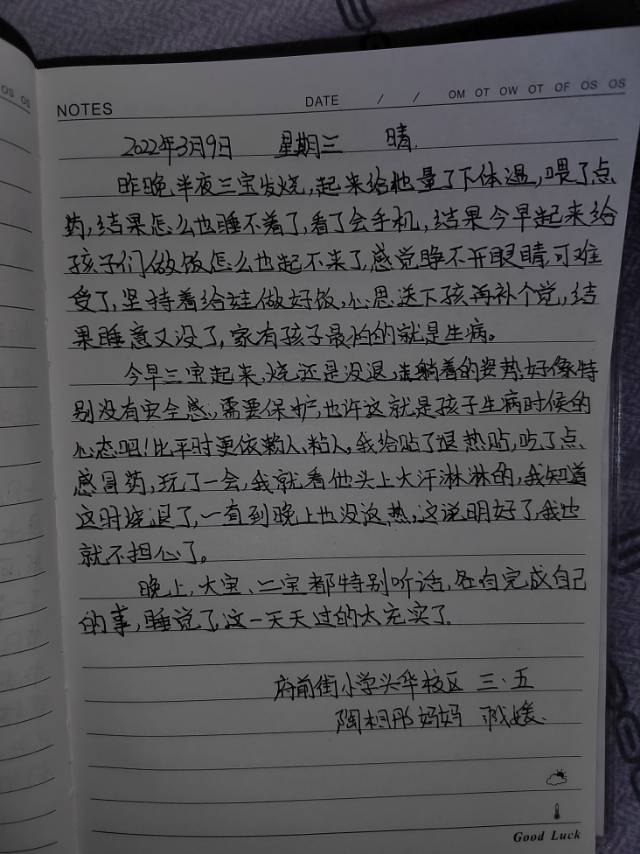 NOTES
DATE / / OM OT OW OT OF OS OS
2022年3月9日 星期三 晴
昨晚半夜三宝发烧,起来给他量了下体温,喂了点
药,结果怎么也睡不着了,看了会手机,结果今早起来给
孩子们做饭怎么也起不来了,感觉睁不开眼睛,可难
受了,坚持着给娃做好饭,心思送下孩再补个觉,结
果睡意又没了,家有孩子最怕的就是生病。
今早三宝起来,烧还是没退,连躺着的姿势,好像特
别没有安全感,需要保护,也许这就是孩子生病时候的
心态吧!比平时更依赖人、粘人。我给贴了退热贴,吃了点
感冒药,玩了一会,我就看他头上大汗淋淋的,我知道
这时烧退了,一直到晚上也没这热,这说明好了,我也
就不担心了。
晚上,大宝、二宝都特别听话,各自完成自己
的事,睡觉了,这一天天过的太充实了。
府前街小学兴华校区 三·五
陶相彤妈妈
Good Luck
OS OS